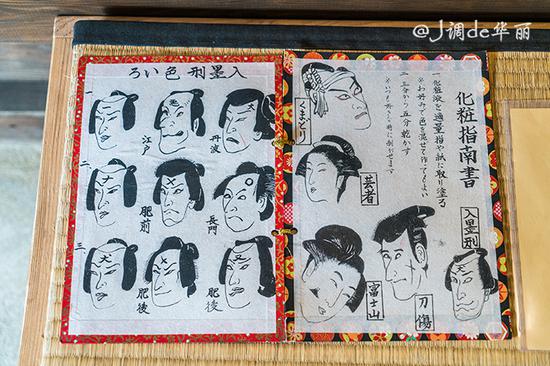 @J调de华丽
化粧指南書
一 化粧液を適量指や紙に取り塗る
※お好みで色を混ぜて作ってもよい
二 五分から
五分乾かす
くまどり
芸者
入墨刑
刀傷
富士山
入墨刑色いろ
丹波
江戸
一
長門
肥前
二
肥後
肥後
三